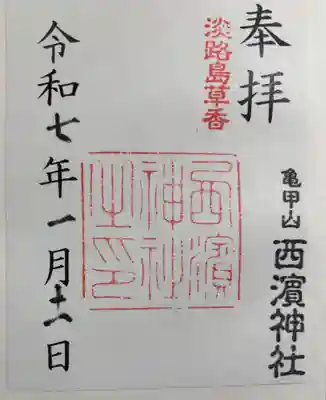 奉拝
淡路島草香
亀甲山 西濱神社
西濱
神社
之印
令和七年一月十一日